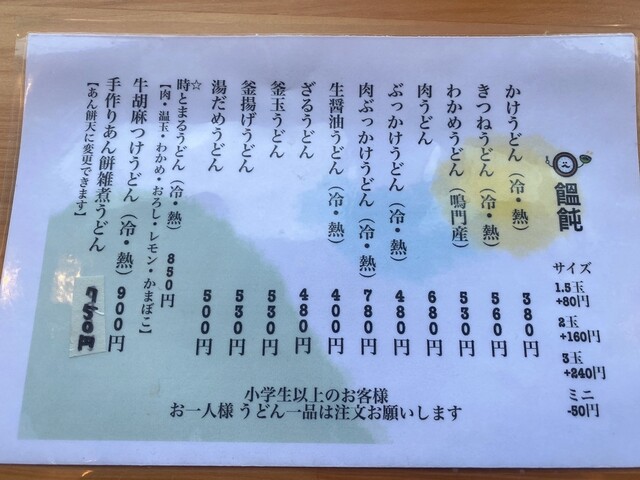 饂飩
サイズ
1.5玉
+80円
2玉
+160円
3玉
+240円
ミニ
-50円
かけうどん（冷・熱） 380円
きつねうどん（冷・熱） 560円
わかめうどん（鳴門産） 530円
肉うどん 680円
ぶっかけうどん（冷・熱） 480円
肉ぶっかけうどん（冷・熱） 780円
生醤油うどん（冷・熱） 400円
ざるうどん 480円
釜玉うどん 530円
釜揚げうどん 530円
湯だめうどん 500円
☆時とまるうどん（冷・熱） 850円
【肉・温玉・わかめ・おろし・レモン・かまぼこ】
牛胡麻つけうどん（冷・熱） 900円
手作りあん餅雑煮うどん
【あん餅天に変更できます】
小学生以上のお客様
お一人様 うどん一品は注文お願いします